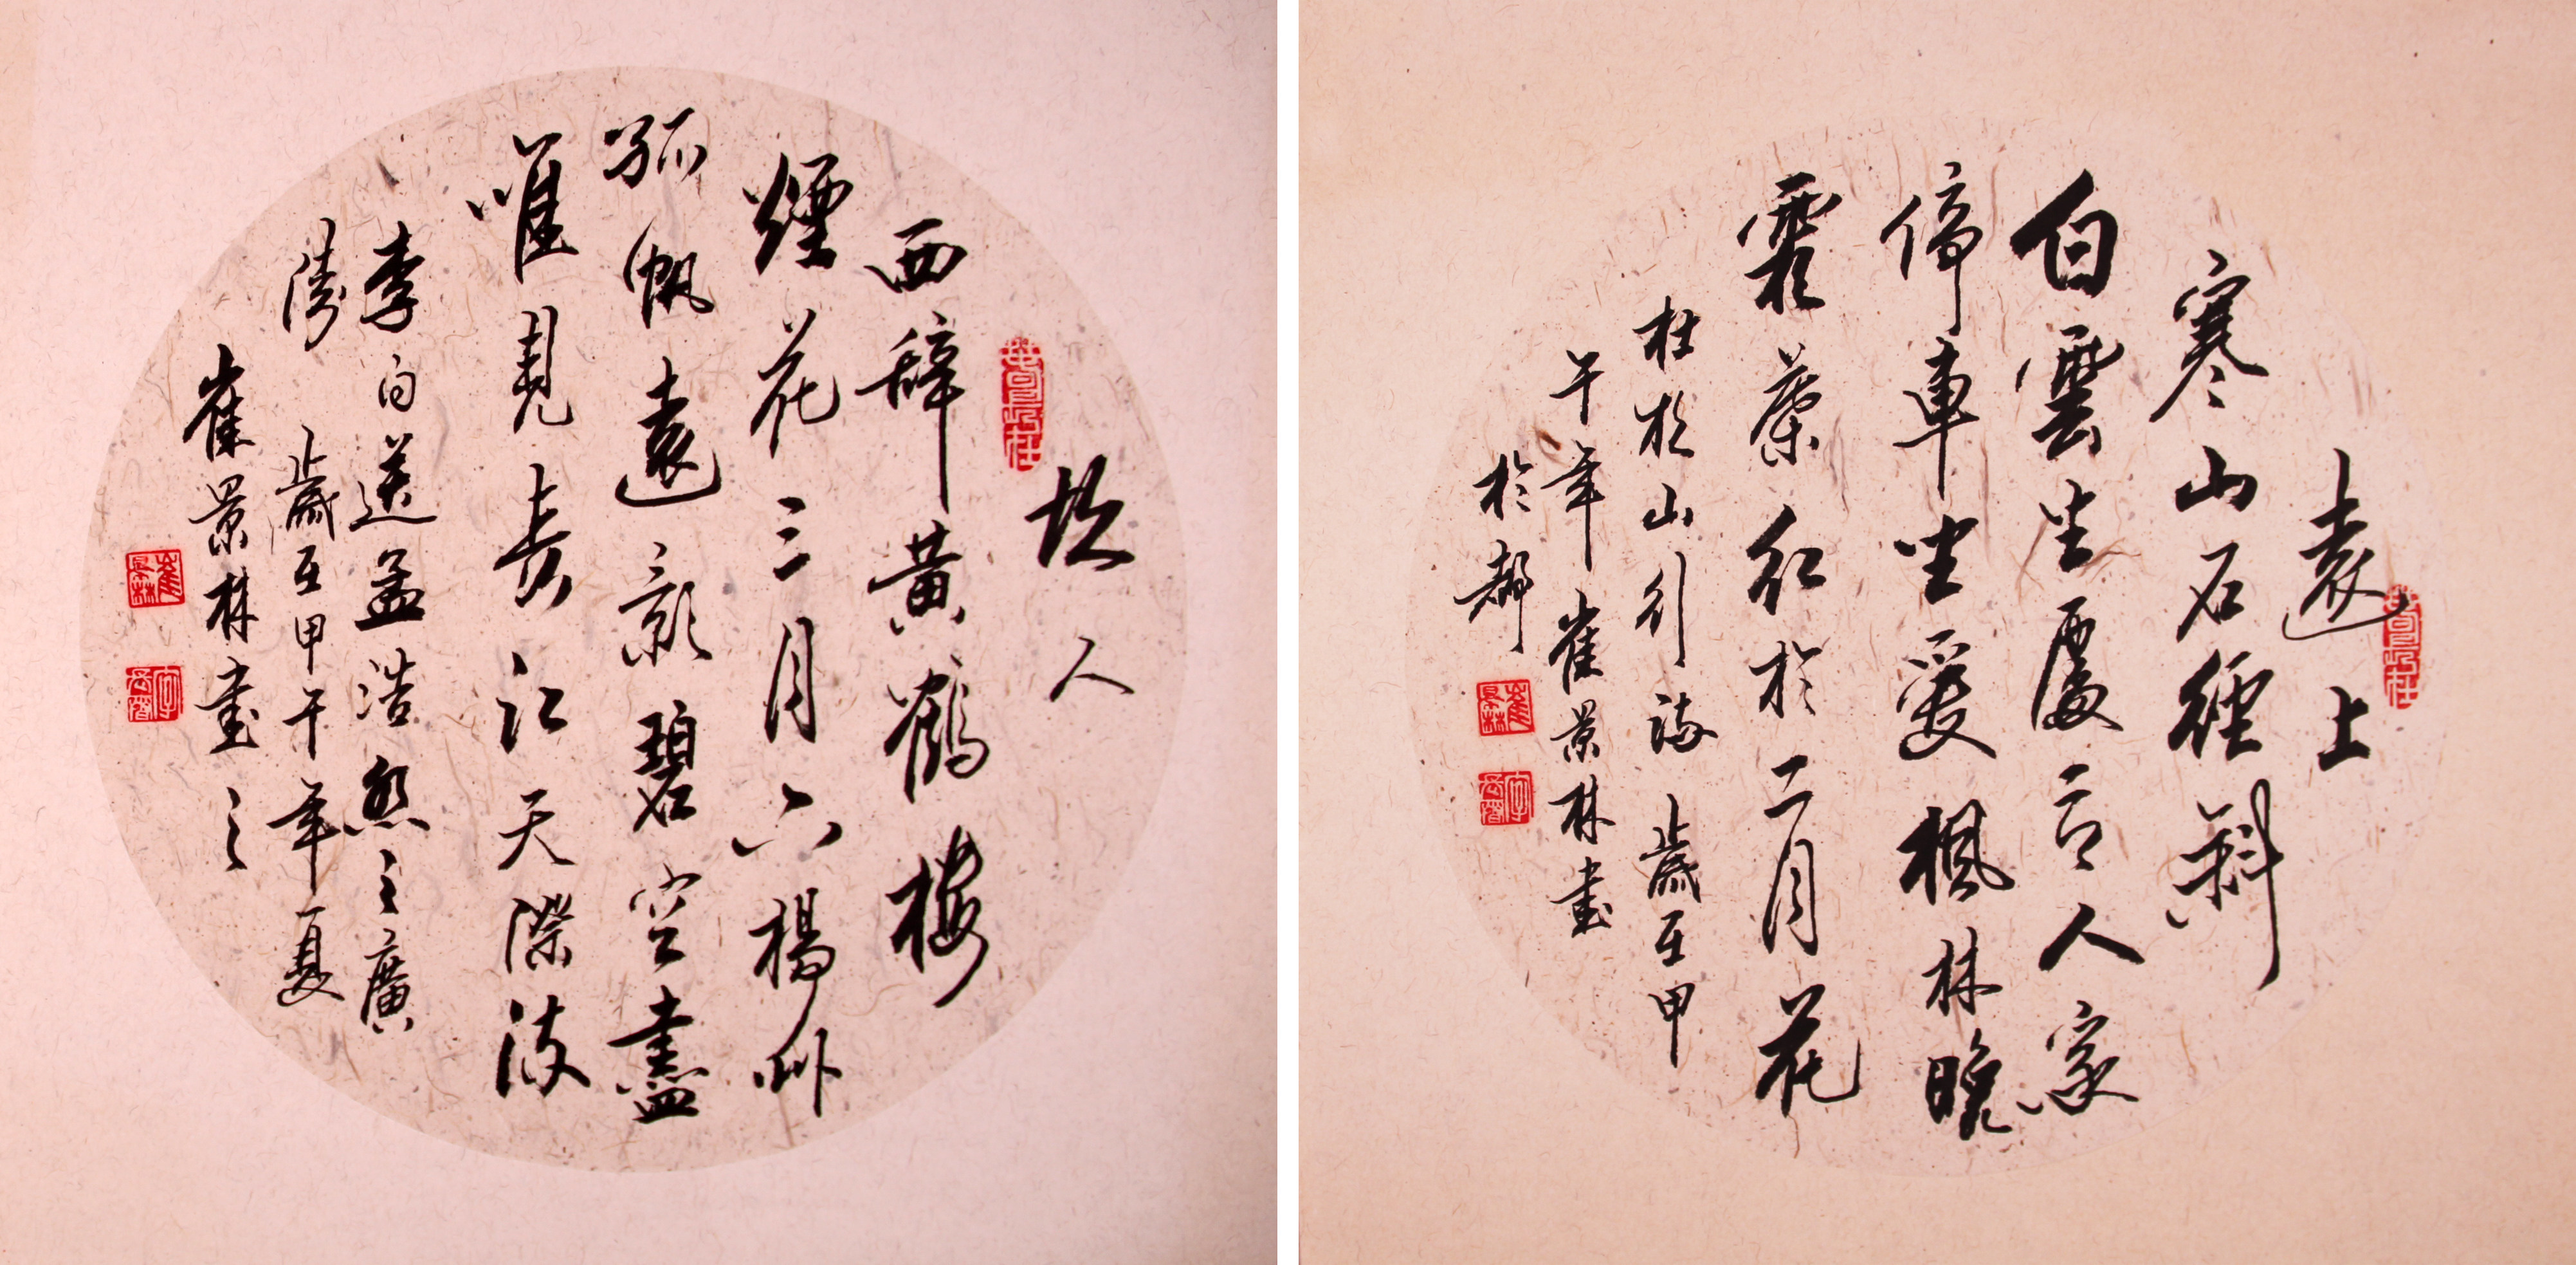 故人
西辭黃鶴樓
煙花三月下揚州
孤帆遠影碧空盡
唯見長江天際流
李白送孟浩然之廣
陵 歲在甲午年夏
崔景林書之
崔景林
遠上
寒山石徑斜
白雲生處有人家
停車坐愛楓林晚
霜葉紅於二月花
杜牧山行詩 歲在甲
午年 崔景林書
於都
崔景林